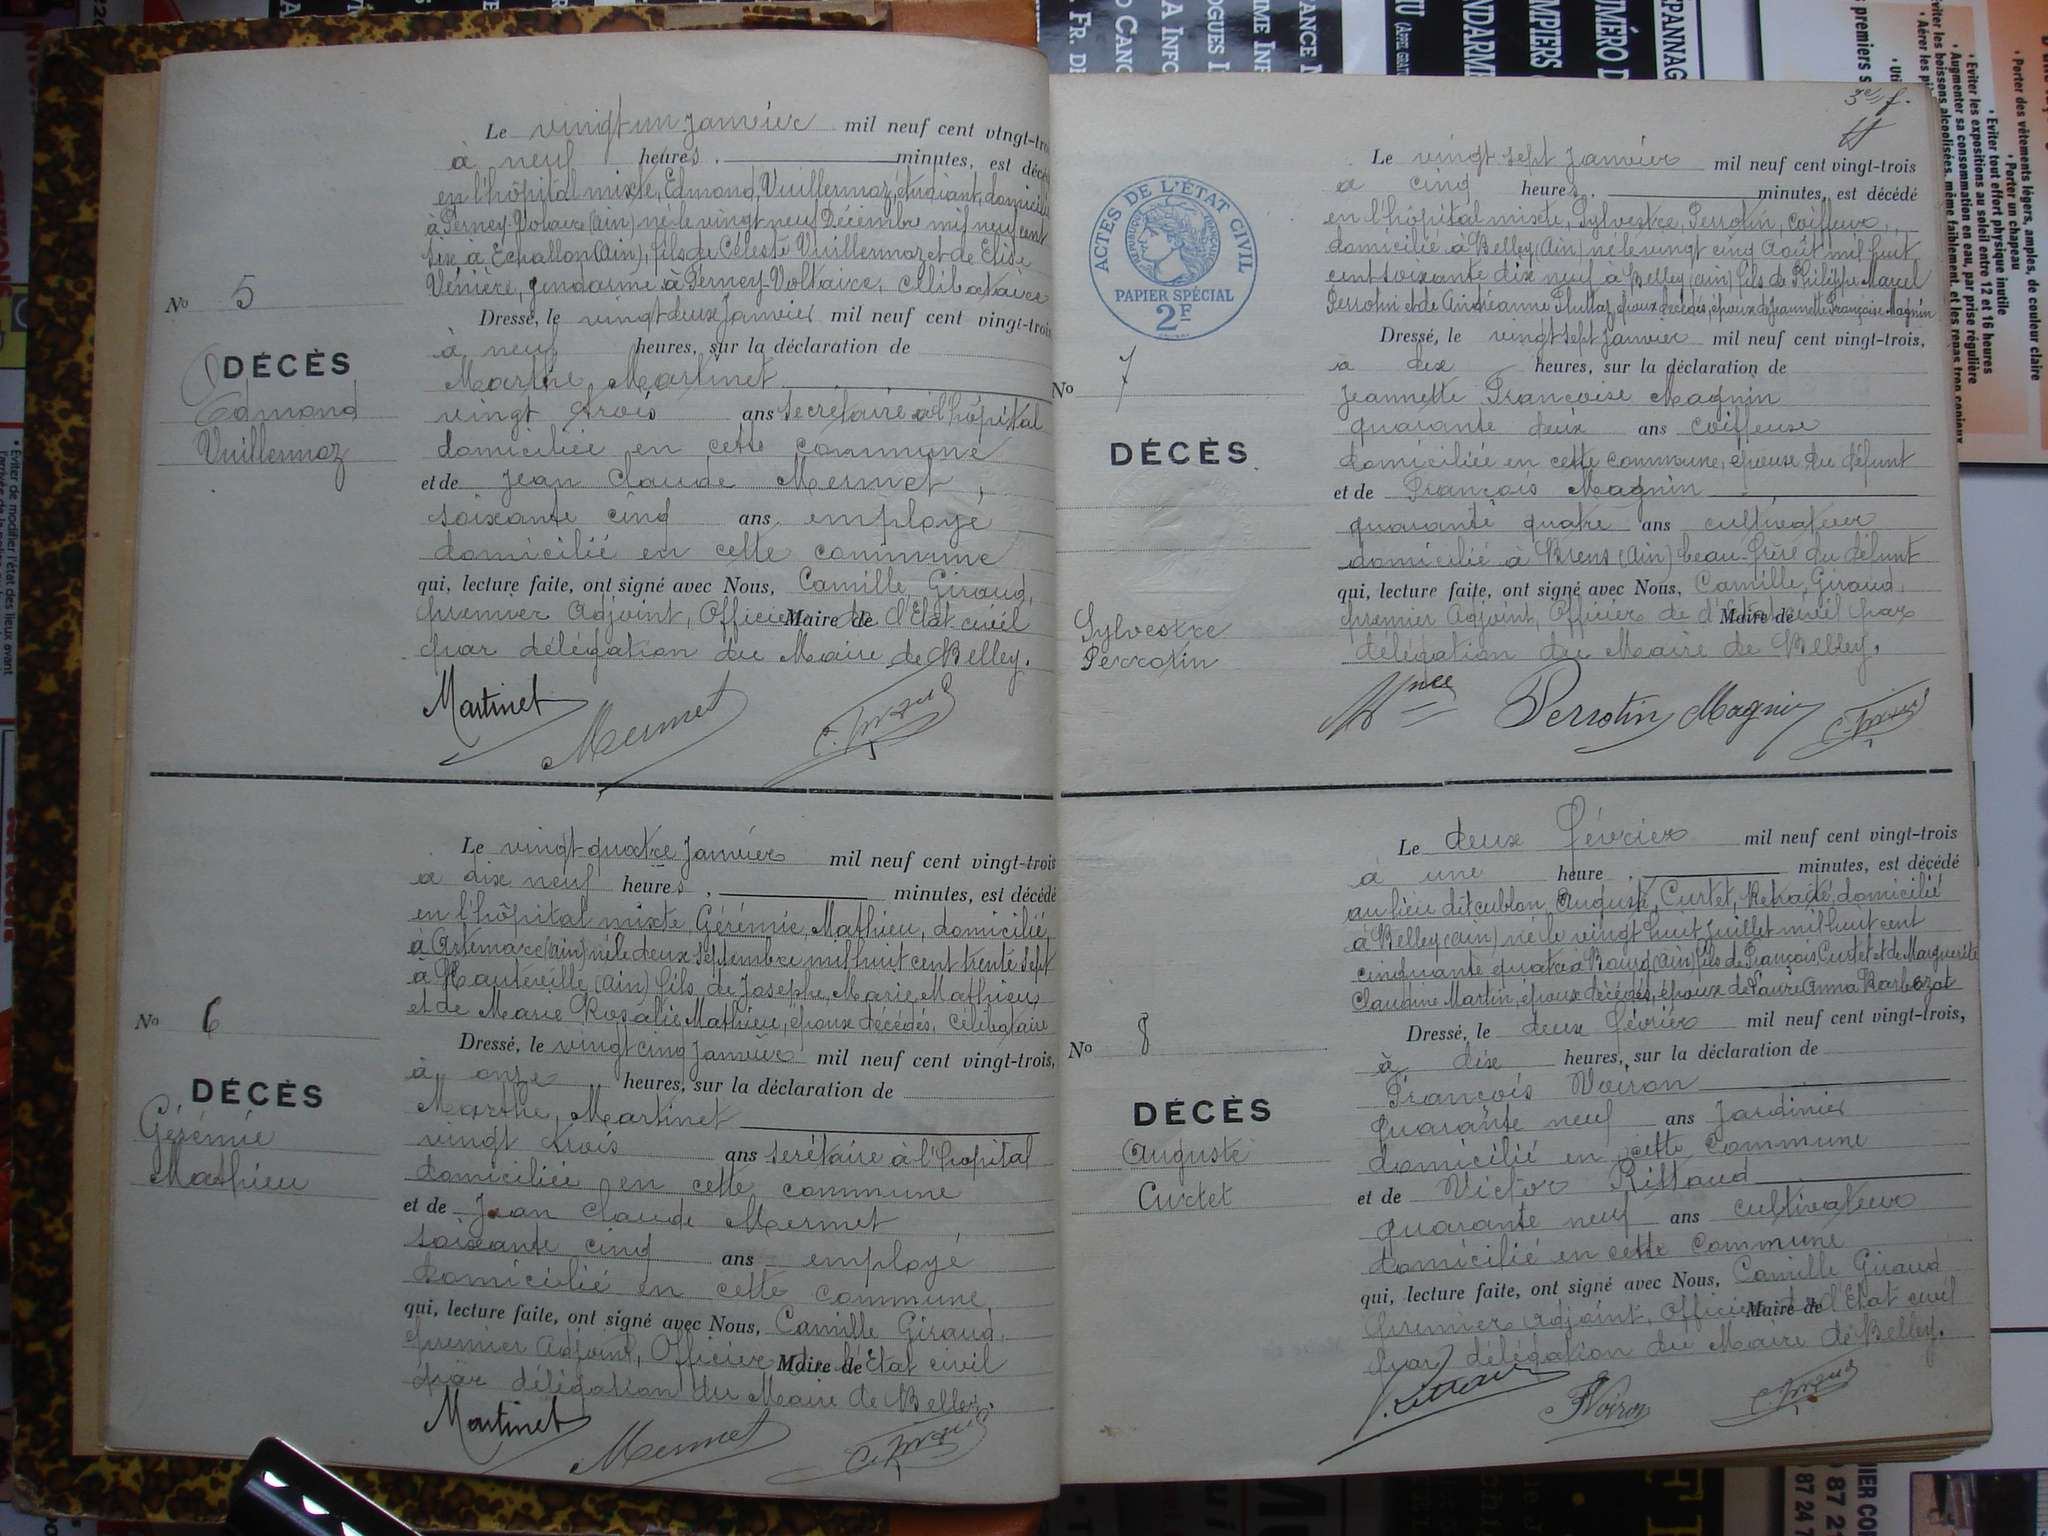 Le vingt un Janvier mil neuf cent vingt-trois
à neuf heures, minutes, est décé
en l'hôpital mixte, Edmond, Vuillermoz, étudiant, domicilié
à Ferney-Voltaire (Ain) né le vingt neuf Décembre mil neuf cent
six à Echallon (Ain), fils de Céleste Vuillermoz et de Elise
Vénière, gendarme à Ferney-Voltaire, célibataire
Nº 5
Dressé, le vingt deux Janvier mil neuf cent vingt-trois
à neuf heures, sur la déclaration de
DÉCÈS
Edmond
Vuillermoz
Marthe Martinet
vingt trois ans secrétaire à l'hôpital
domiciliée en cette commune
et de Jean Claude Mermet,
soixante cinq ans employé
domicilié en cette commune
qui, lecture faite, ont signé avec Nous, Camille Giraud,
premier Adjoint, Officier Maire de de l'Etat civil
par délégation du Maire de Belley.
Martinet Mermet C. Giraud
Le vingt quatre Janvier mil neuf cent vingt-trois
à dix neuf heures, minutes, est décédé
en l'hôpital mixte, Gérémie, Mathieu, domicilié,
à Artemare (Ain) né le deux septembre mil huit cent trente sept
à Hauteville (Ain) fils de Joseph, Marie Mathieu
et de Marie Rosalie Mathieu, époux décédés, célibataire
Nº 6
Dressé, le vingt cinq Janvier mil neuf cent vingt-trois,
à onze heures, sur la déclaration de
DÉCÈS
Gérémie
Mathieu
Marthe, Martinet
vingt trois ans serétaire à l'hopital
domiciliée en cette commune
et de Jean Claude Mermet
soixante cinq ans employé
domicilié en cette commune,
qui, lecture faite, ont signé avec Nous, Camille Giraud,
premier Adjoint, Officier Maire de de l'Etat civil
par délégation du Maire de Belley.
Martinet Mermet C. Giraud
3e f.
Le vingt sept Janvier mil neuf cent vingt-trois
à cinq heures, minutes, est décédé
en l'hôpital mixte, Sylvestre, Perrotin, coiffeur,
domicilié à Belley (Ain) né le vingt cinq Août mil huit
cent soixante dix neuf à Belley (Ain) fils de Philippe Marcel
Perrotin et de Andréanne Pluttaz, époux décédés, époux de Jeannette Françoise Magnin
ACTES DE L'ÉTAT CIVIL
RÉPUBLIQUE FRANÇAISE
PAPIER SPÉCIAL
2F
Dressé, le vingt sept Janvier mil neuf cent vingt-trois,
à dix heures, sur la déclaration de
Nº 7
DÉCÈS
Sylvestre
Perrotin
Jeannette Françoise Magnin
quarante deux ans coiffeuse
domiciliée en cette commune, épouse du défunt
et de François Magnin
quarante quatre ans cultivateur
domicilié à Brens (Ain) beau-frère du défunt
qui, lecture faite, ont signé avec Nous, Camille Giraud,
premier Adjoint, Officier de Maire de d'Etat civil par
délégation du Maire de Belley.
Perrotin Magnin C. Giraud
Le deux Février mil neuf cent vingt-trois
à une heure, minutes, est décédé
au lieu dit Cublon, Auguste, Curtet, Retraité, domicilié
à Belley (Ain) né le vingt huit Juillet mil huit cent
cinquante quatre à Bourg (Ain) fils de François Curtet et de Marguerite
Claudine Martin, époux décédés, époux de Laure Anna Barbozat
Nº 8
Dressé, le deux Février mil neuf cent vingt-trois,
à dix heures, sur la déclaration de
DÉCÈS
Auguste
Curtet
François Voiron
quarante neuf ans Jardinier
domicilié en cette commune
et de Victor Rittaud
quarante neuf ans cultivateur
domicilié en cette commune
qui, lecture faite, ont signé avec Nous, Camille Giraud
premier Adjoint, Officier Maire de de l'Etat civil
par délégation du Maire de Belley.
Rittaud FVoiron C. Giraud
• Porter des vêtements légers, amples, de couleur claire
• Porter un chapeau
• Eviter tout effort physique inutile
• Eviter les expositions au soleil entre 12 et 16 heures
• Augmenter sa consommation en eau, par prise régulière